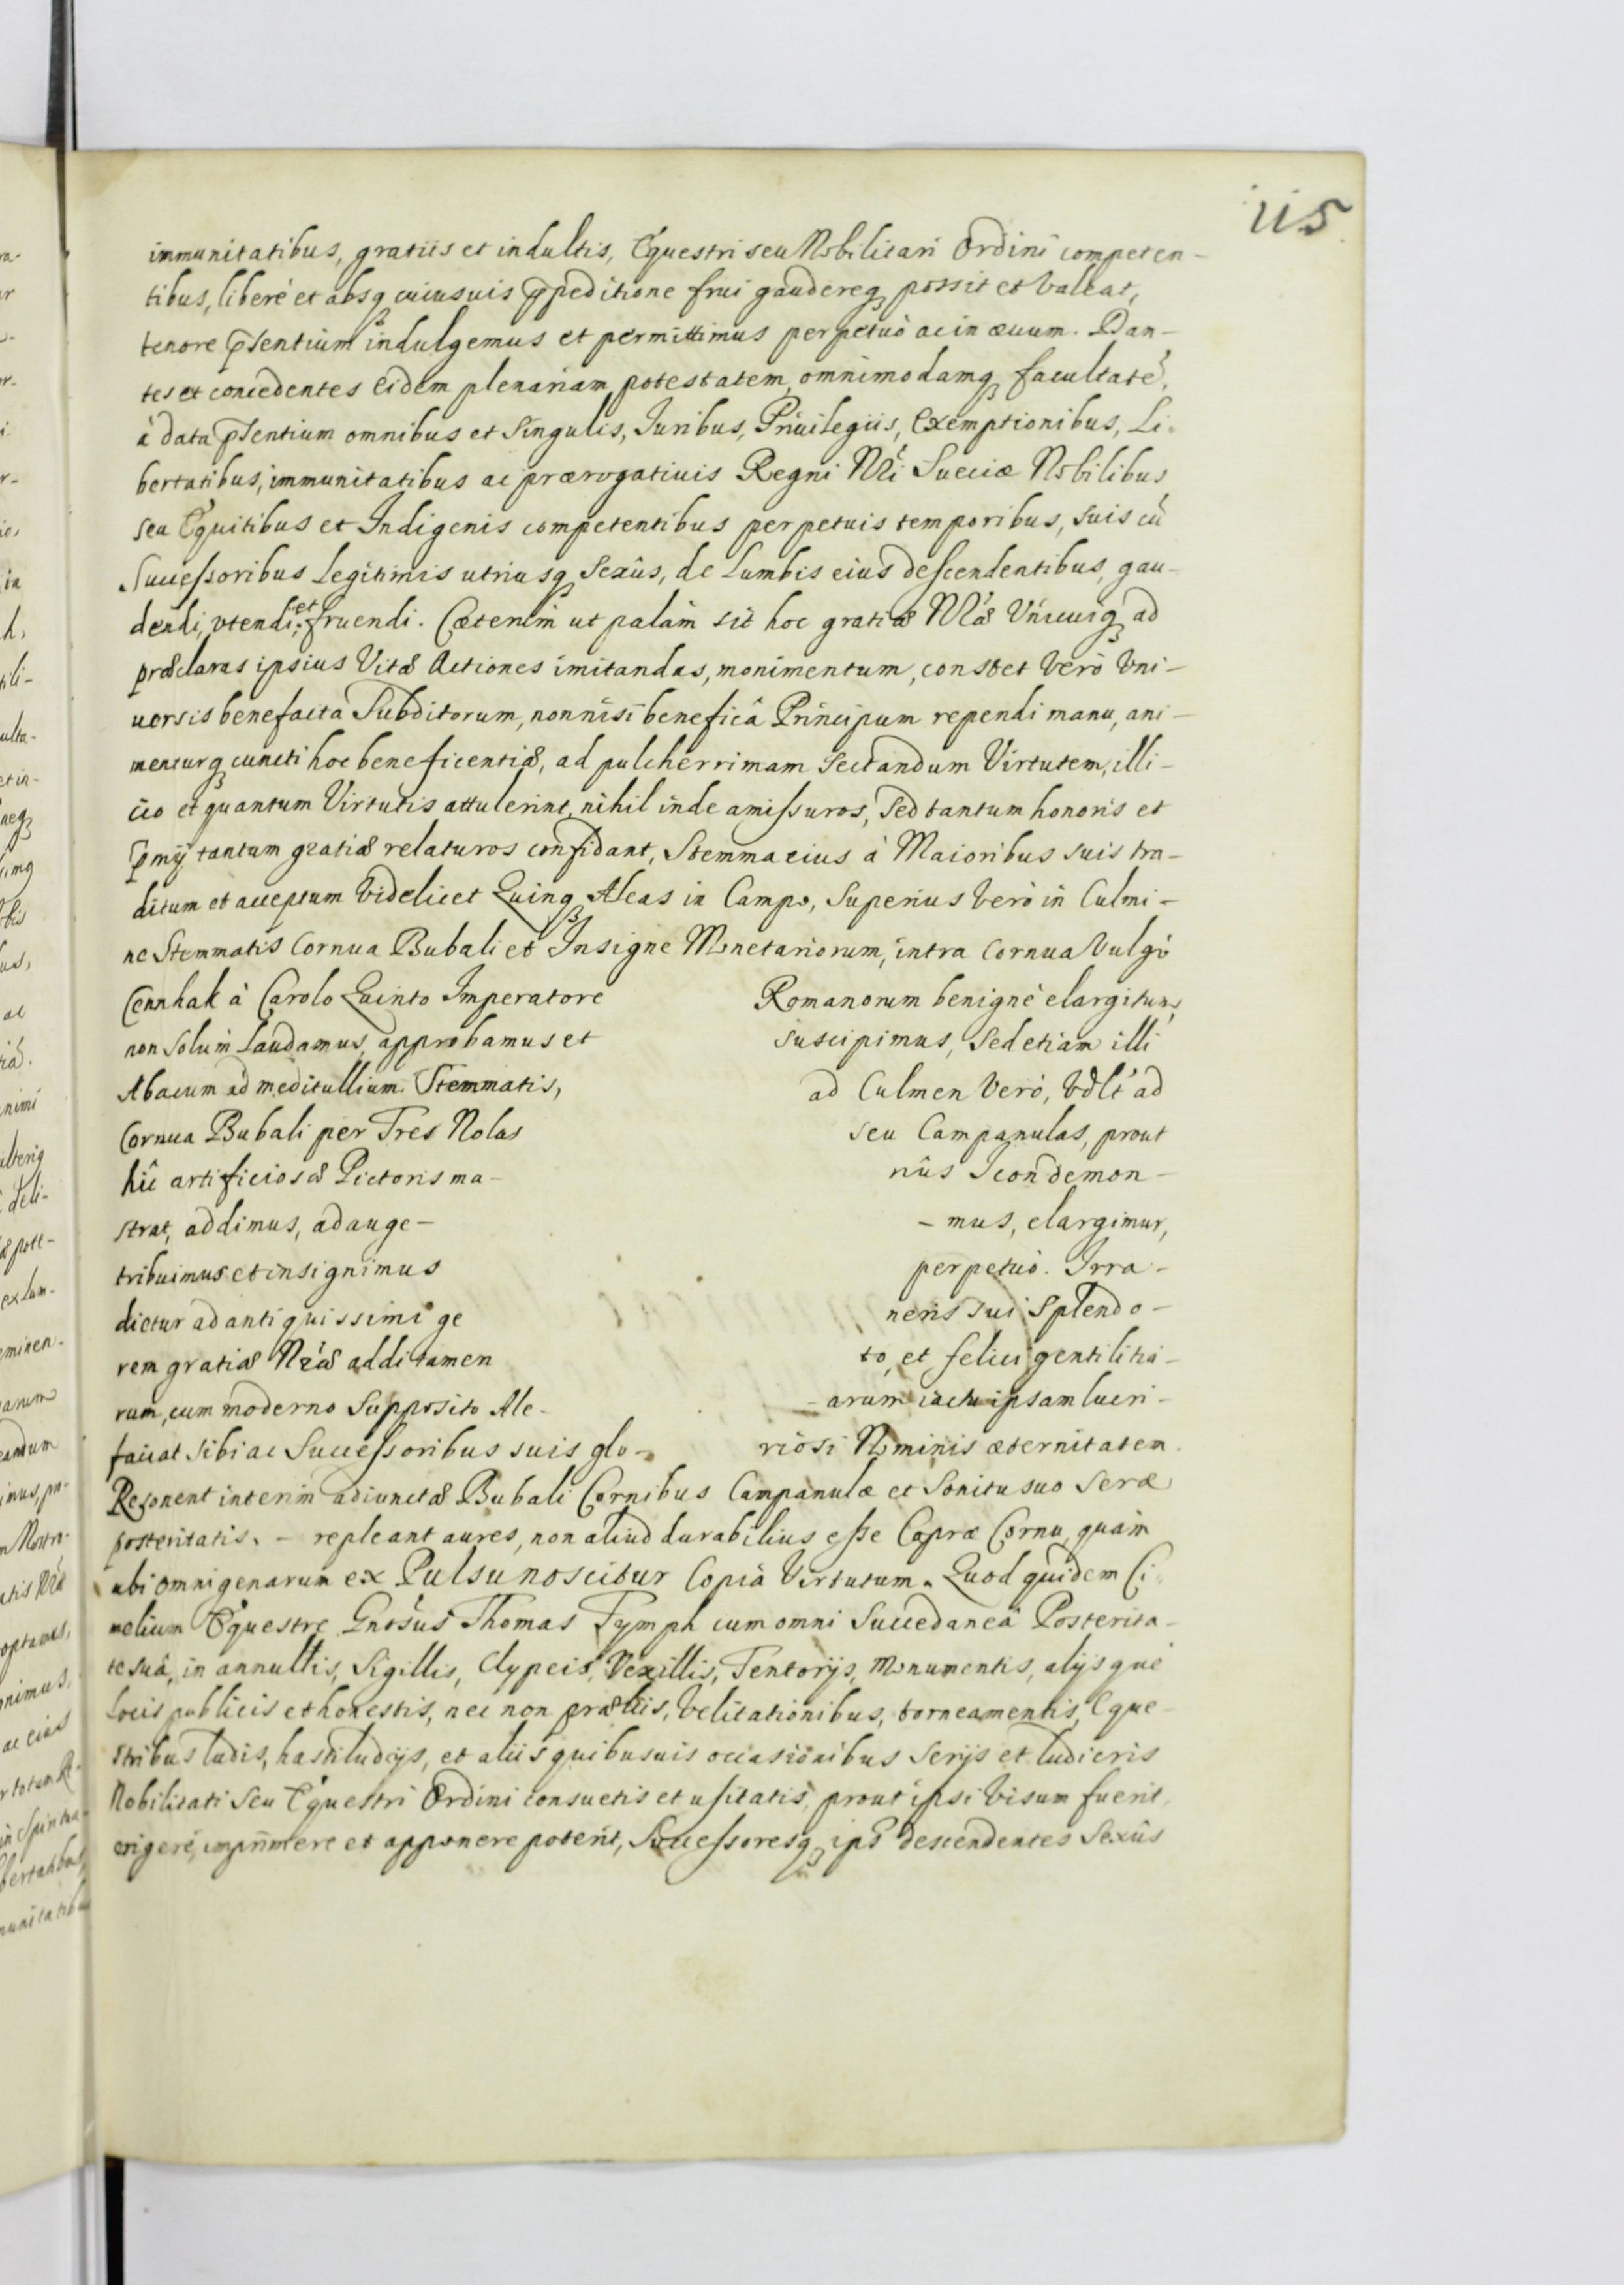 115
immunitatibus, gratiis et indultis, Equestri seu Nobilitari Ordini competen-
tibus, liberè et absq cuiusuis p̃peditione frui gaudereq possit et valeat,
tenore p̃sentium indulgemus et permittimus perpetuò ac in æuum. Dan-
tes et concedentes eidem plenariam potestatem omnimodamq facultatẽ,
à data p̃sentium omnibus et singulis, Iuribus, Priuilegiis, Exemptionibus, Li-
bertatibus, immunitatibus ac prærogatiuis Regni Nr̃i Sueciæ Nobilibus
seu Equitibus et Indigenis competentibus perpetuis temporibus, suis cũ
Successoribus Legitimis utriusq Sexûs, de Lumbis eius descendentibus, gau-
dendi, vtendi, et fruendi. Cæterùm ut palàm sit hoc gratiæ Nr̃æ Vnicuiq ad
præclaras ipsius Vitæ Actiones imitandas, monimentum, constet verò vni-
uersis benefacta Subditorum, nonnisi beneficâ Principum rependi manu, ani-
menturq cuncti hoc beneficentiæ, ad pulcherrimam sectandum Virtutem, illi-
cio et quantum Virtutis attulerint, nihil inde amissuros, sed tantum honoris et
p̃mij tantum gratiæ relaturos confidant, Stemma eius à Maioribus suis tra-
ditum et acceptum videlicet Quinq Aleas in Campo, Superius verò in Culmi-
ne Stemmatis Cornua Bubali et Insigne Monetariorum, intra Cornua vulgò
Cennhak à Carolo Quinto Imperatore Romanorum benignè elargitum,
non solùm laudamus, approbamus et suscipimus, sed etiam illi
Abacum ad meditullium Stemmatis, ad Culmen verò, vdlt̃ ad
Cornua Bubali per Tres Nolas seu Campanulas, prout
hîc artificiosæ Pictoris ma- nûs Icon demon-
strat, addimus, adauge- - mus, elargimur,
tribuimus et insignimus perpetuò. Irra-
dietur ad antiquissimi ge neris sui Splendo-
rem gratiæ Nr̃æ additamen to, et felici gentilitia-
rum, cum moderno Supposito Ale- - arum iactu ipsam lucri-
faciat sibi ac Successoribus suis glo- riosi Nominis æternitatem.
Resonent interim adiunctæ Bubali Cornibus Campanulæ et Sonitu suo seræ
posteritatis. - repleant aures, non aliud durabilius esse Copræ Cornu, quàm
ubi omnigenarum ex Pulsu noscitur Copià Virtutum. Quod quidem Ci-
melium Equestre Gnõsus Thomas Tymph cum omni Succedaneâ Posterita-
te suâ, in annullis, Sigillis, Clypeis, Vexillis, Tentorijs, Monumentis, alijsque
Locis publicis et honestis, nec non præliis, velitationibus, torneamentis, Eque-
stribus ludis, hastiludijs, et aliis quibusuis occasionibus serijs et ludicris
Nobilitati seu Equestri Ordini consuetis et usitatis, prout ipsi visum fuerit,
erigere, imprimere et apponere poterit, Successoresq ips̃ descendentes Sexûs